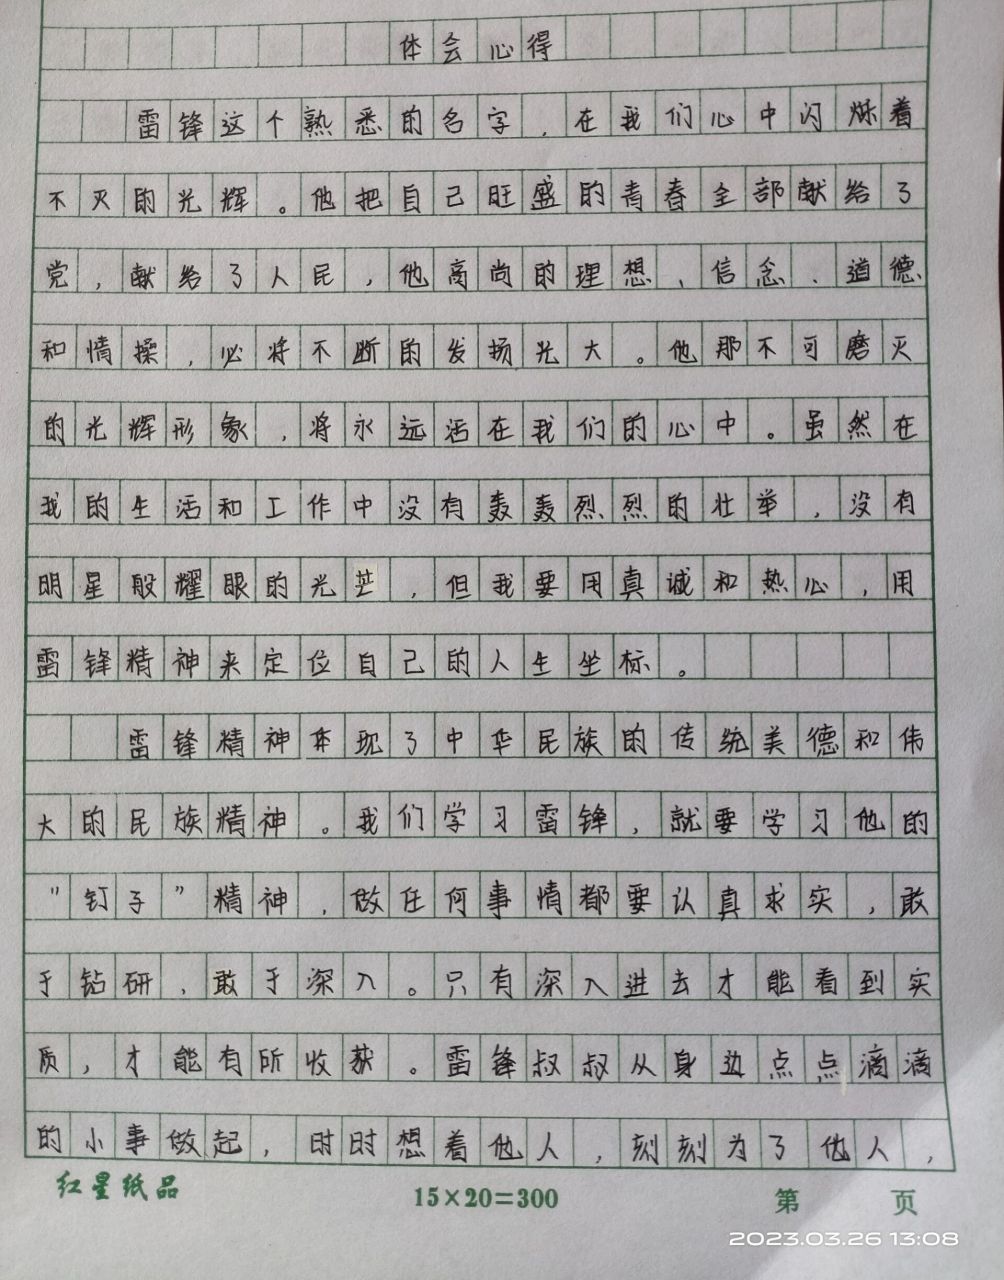 体会心得
雷锋这个熟悉的名字，在我们心中闪烁着
不灭的光辉。他把自己旺盛的青春全部献给了
党，献给了人民，他高尚的理想、信念、道德、
和情操，必将不断的发扬光大。他那不可磨灭
的光辉形象，将永远活在我们的心中。虽然在
我的生活和工作中没有轰轰烈烈的壮举，没有
明星般耀眼的光芒，但我要用真诚和热心，用
雷锋精神来定位自己的人生坐标。
雷锋精神体现了中华民族的传统美德和伟
大的民族精神。我们学习雷锋，就要学习他的
"钉子"精神，做任何事情都要认真求实，敢
于钻研，敢于深入。只有深入进去才能看到实
质，才能有所收获。雷锋叔叔从身边点点滴滴
的小事做起，时时想着他人，刻刻为了他人，
红星纸品 15×20=300 第 页
2023.03.26 13:08